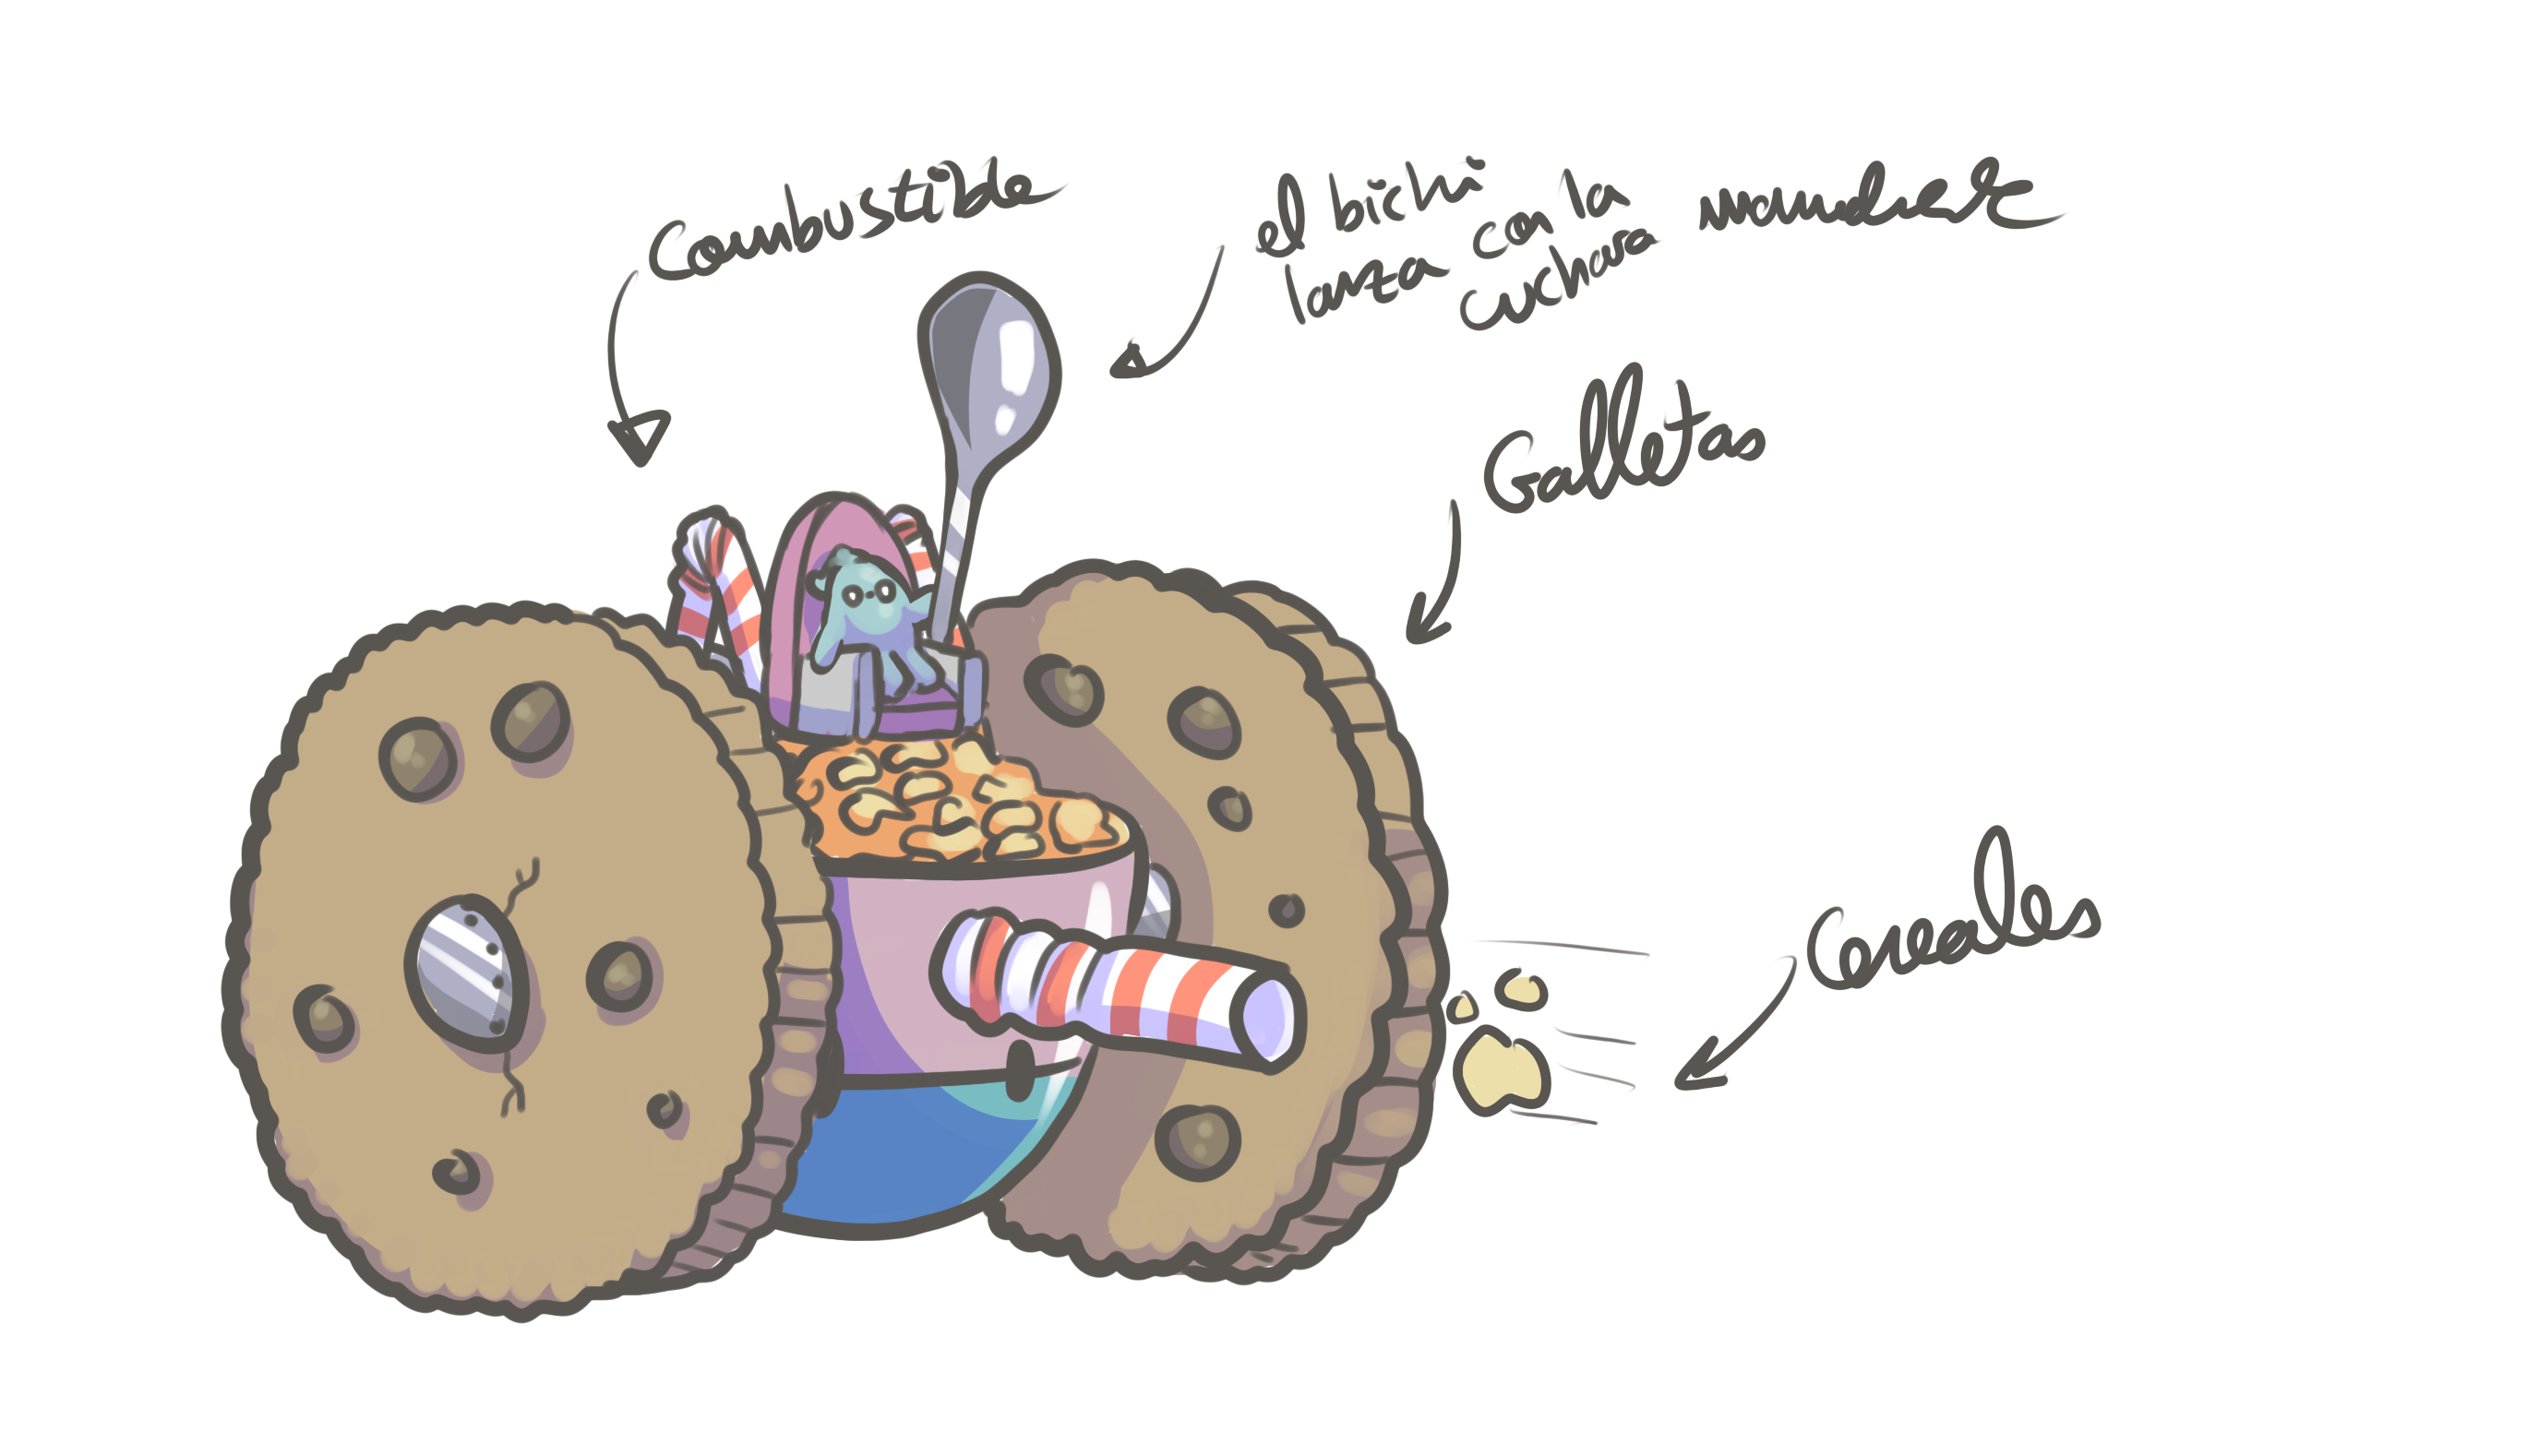 Combustible
el bichi
lanza con la
cuchara
Galletas
Cereales